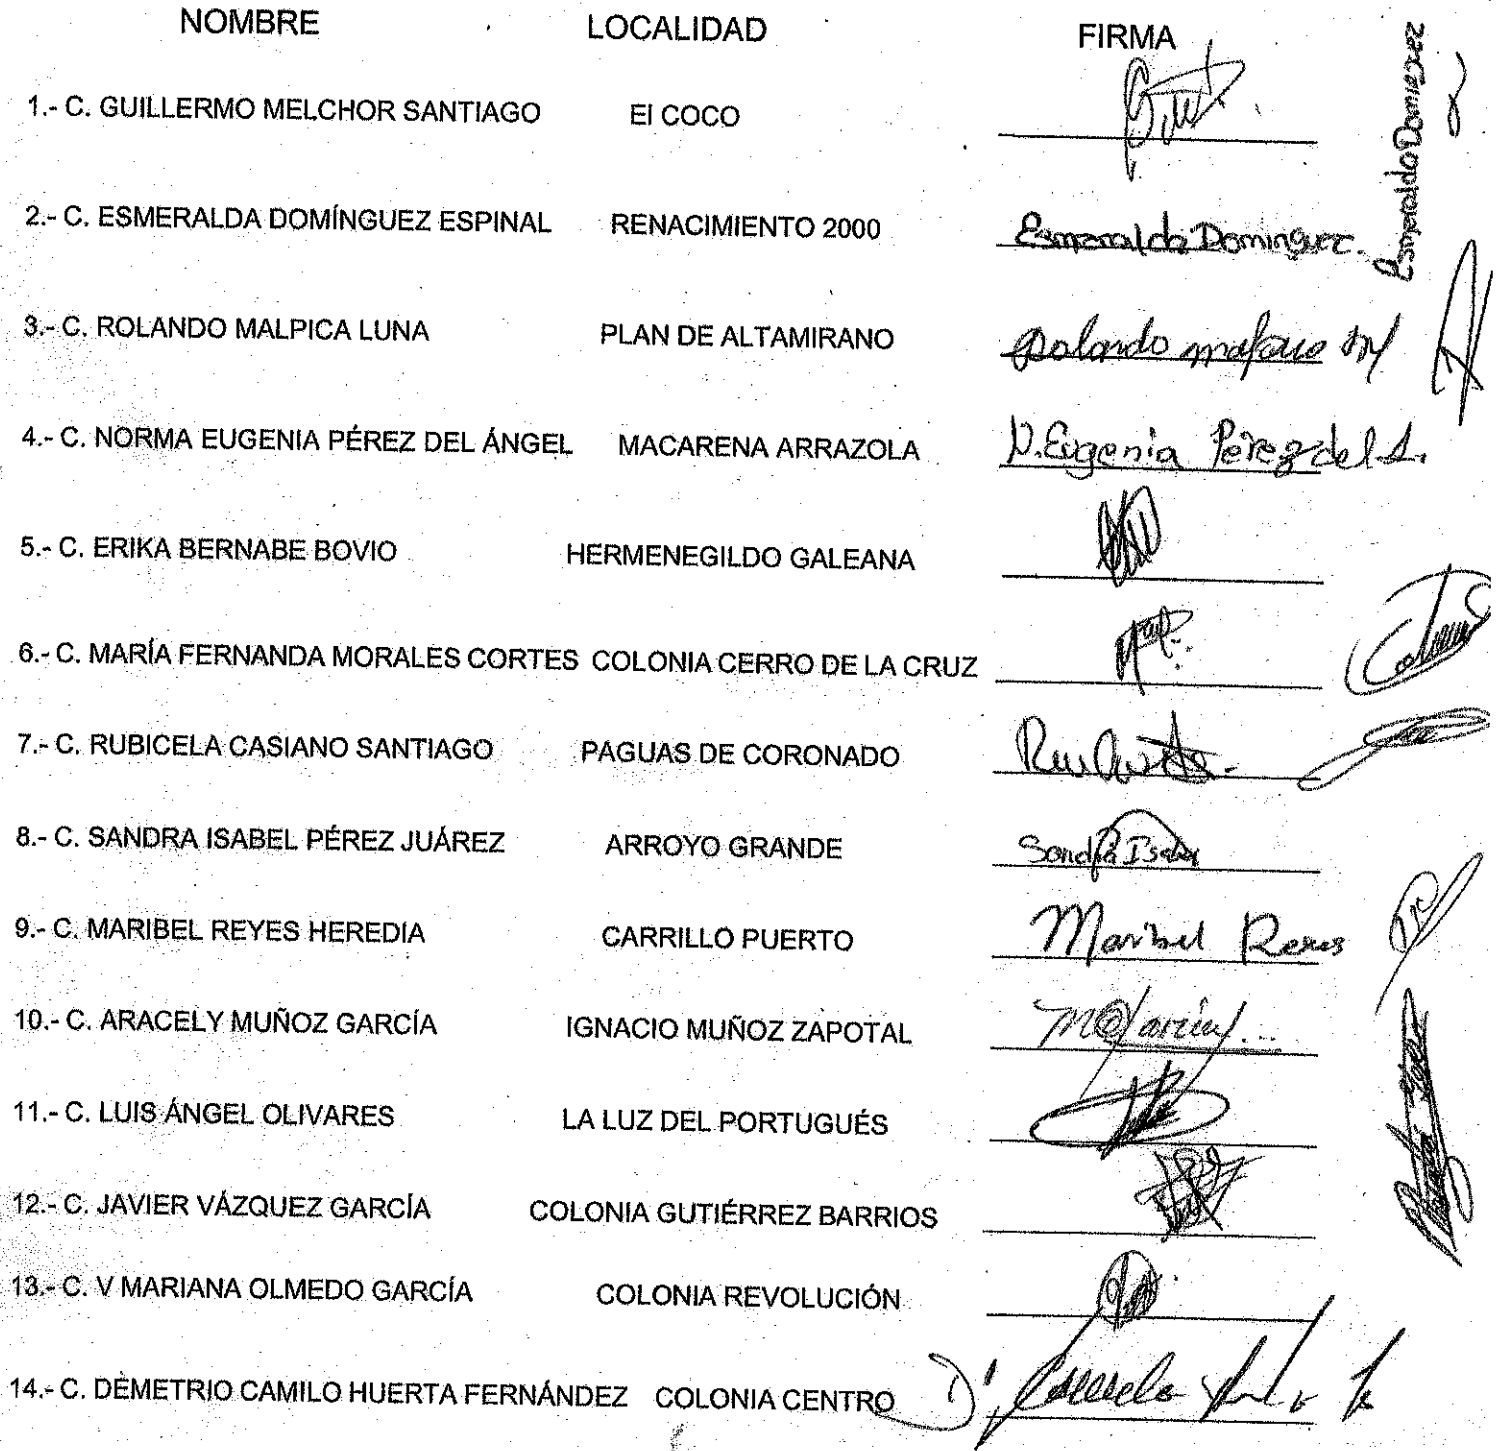 NOMBRE LOCALIDAD FIRMA
1.- C. GUILLERMO MELCHOR SANTIAGO El COCO
2.- C. ESMERALDA DOMÍNGUEZ ESPINAL RENACIMIENTO 2000 Esmeralda Dominguez.
Esmeralda Dominguez
3.- C. ROLANDO MALPICA LUNA PLAN DE ALTAMIRANO Rolando
4.- C. NORMA EUGENIA PÉREZ DEL ÁNGEL MACARENA ARRAZOLA N. Eugenia Pérez del A.
5.- C. ERIKA BERNABE BOVIO HERMENEGILDO GALEANA
6.- C. MARÍA FERNANDA MORALES CORTES COLONIA CERRO DE LA CRUZ
7.- C. RUBICELA CASIANO SANTIAGO PAGUAS DE CORONADO
8.- C. SANDRA ISABEL PÉREZ JUÁREZ ARROYO GRANDE Sandra Isabel
9.- C. MARIBEL REYES HEREDIA CARRILLO PUERTO Maribel Reyes
10.- C. ARACELY MUÑOZ GARCÍA IGNACIO MUÑOZ ZAPOTAL
11.- C. LUIS ÁNGEL OLIVARES LA LUZ DEL PORTUGUÉS
12.- C. JAVIER VÁZQUEZ GARCÍA COLONIA GUTIÉRREZ BARRIOS
13.- C. V MARIANA OLMEDO GARCÍA COLONIA REVOLUCIÓN
14.- C. DEMETRIO CAMILO HUERTA FERNÁNDEZ COLONIA CENTRO